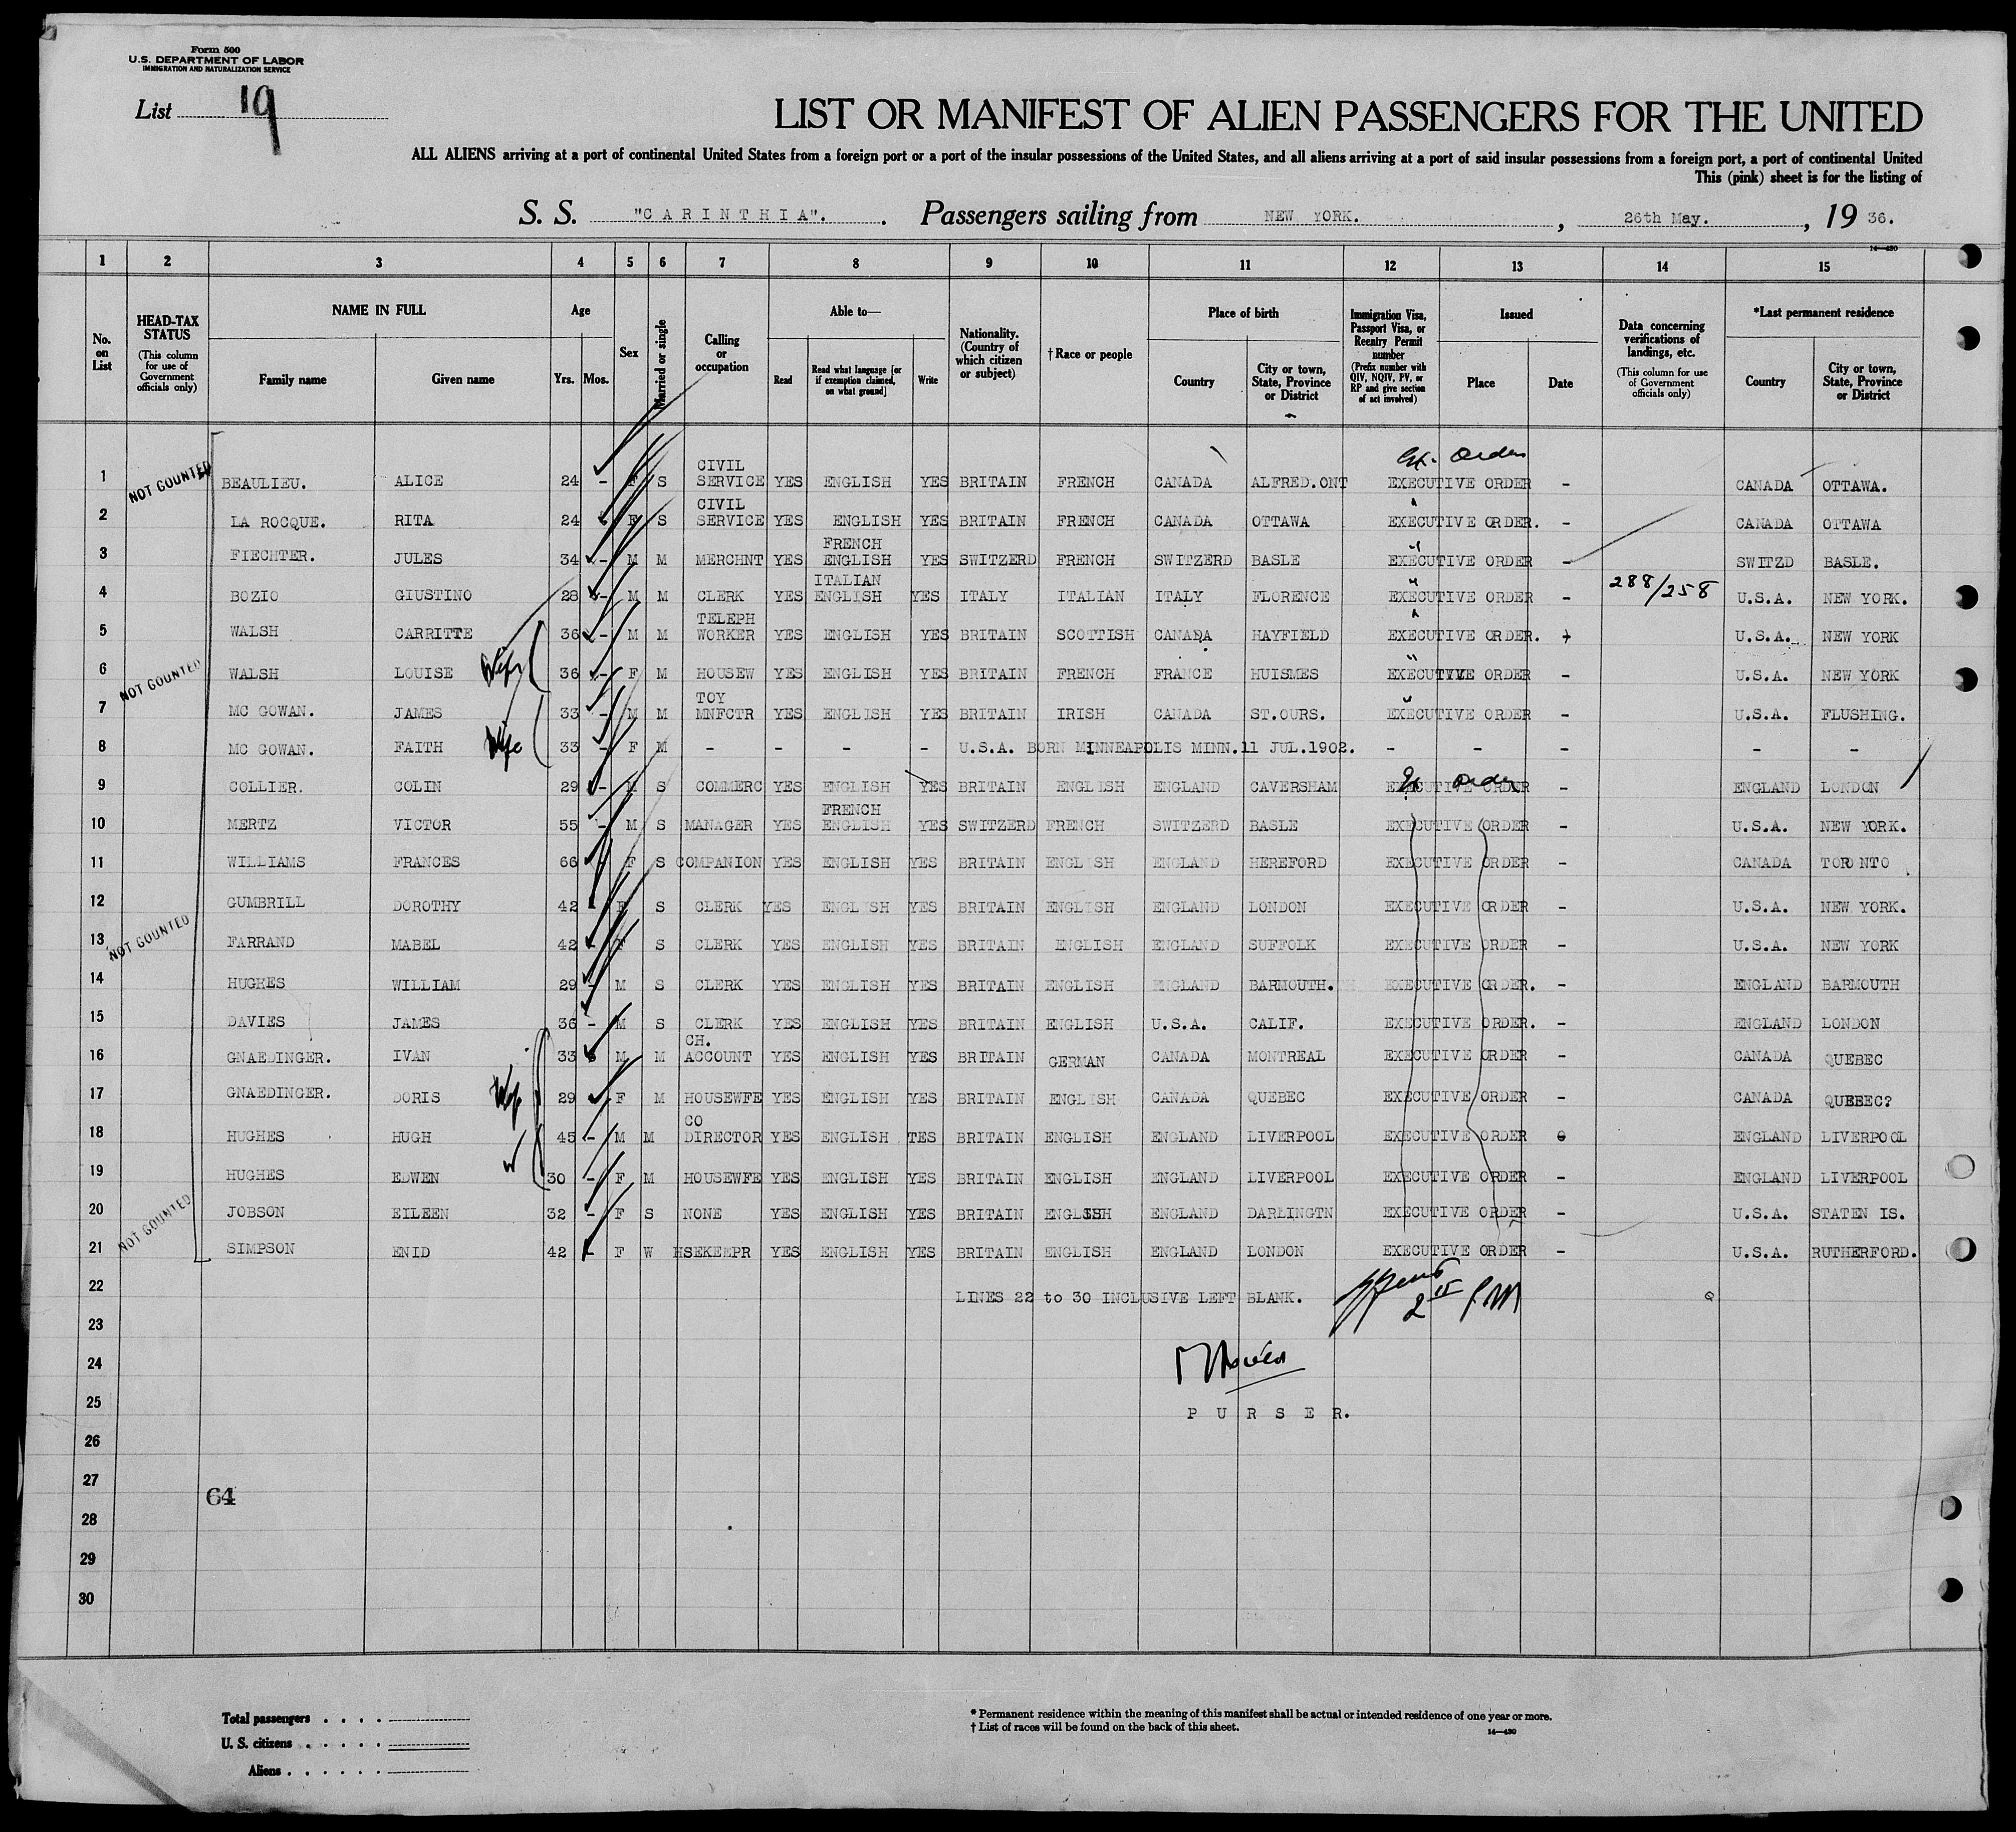 Form 500
U.S. DEPARTMENT OF LABOR
IMMIGRATION AND NATURALIZATION SERVICE
List 19
LIST OR MANIFEST OF ALIEN PASSENGERS FOR THE UNITED
ALL ALIENS arriving at a port of continental United States from a foreign port or a port of the insular possessions of the United States, and all aliens arriving at a port of said insular possessions from a foreign port, a port of continental United
This (pink) sheet is for the listing of
S. S. "CARINTHIA". Passengers sailing from NEW YORK. , 26th May. , 19 36.
14—430
1 2 3 4 5 6 7 8 9 10 11 12 13 14 15
No. on List
HEAD-TAX STATUS (This column for use of Government officials only)
NAME IN FULL Family name Given name
Age Yrs. Mos.
Sex
Married or single
Calling or occupation
Able to— Read Read what language [or if exemption claimed, on what ground] Write
Nationality. (Country of which citizen or subject)
† Race or people
Place of birth Country City or town, State, Province or District
Immigration Visa, Passport Visa, or Reentry Permit number (Prefix number with QIV, NQIV, PV, or RP and give section of act involved)
Issued Place Date
Data concerning verifications of landings, etc. (This column for use of Government officials only)
*Last permanent residence Country City or town, State, Province or District
Ex. Order
1 NOT COUNTED BEAULIEU. ALICE 24 - F S CIVIL SERVICE YES ENGLISH YES BRITAIN FRENCH CANADA ALFRED.ONT EXECUTIVE ORDER - CANADA OTTAWA.
2 LA ROCQUE. RITA 24 - F S CIVIL SERVICE YES ENGLISH YES BRITAIN FRENCH CANADA OTTAWA EXECUTIVE ORDER. - CANADA OTTAWA
3 FIECHTER. JULES 34 - M M MERCHNT YES FRENCH ENGLISH YES SWITZERD FRENCH SWITZERD BASLE EXECUTIVE ORDER - SWITZD BASLE.
4 BOZIO GIUSTINO 28 - M M CLERK YES ITALIAN ENGLISH YES ITALY ITALIAN ITALY FLORENCE EXECUTIVE ORDER - 288/258 U.S.A. NEW YORK.
5 WALSH CARRITTE 36 - M M TELEPH WORKER YES ENGLISH YES BRITAIN SCOTTISH CANADA HAYFIELD EXECUTIVE ORDER. - U.S.A. NEW YORK
6 NOT COUNTED WALSH LOUISE Wife 36 - F M HOUSEW YES ENGLISH YES BRITAIN FRENCH FRANCE HUISMES EXECUTIVE ORDER - U.S.A. NEW YORK
7 MC GOWAN. JAMES 33 - M M TOY MNFCTR YES ENGLISH YES BRITAIN IRISH CANADA ST.OURS. EXECUTIVE ORDER - U.S.A. FLUSHING.
8 MC GOWAN. FAITH Wife 33 - F M - - - - U.S.A. BORN MINNEAPOLIS MINN.11 JUL.1902. - - - - -
9 COLLIER. COLIN 29 - M S COMMERC YES ENGLISH YES BRITAIN ENGLISH ENGLAND CAVERSHAM EXECUTIVE ORDER Ex Order - ENGLAND LONDON
10 MERTZ VICTOR 55 - M S MANAGER YES FRENCH ENGLISH YES SWITZERD FRENCH SWITZERD BASLE EXECUTIVE ORDER - U.S.A. NEW YORK.
11 WILLIAMS FRANCES 66 - F S COMPANION YES ENGLISH YES BRITAIN ENGLISH ENGLAND HEREFORD EXECUTIVE ORDER - CANADA TORONTO
12 GUMBRILL DOROTHY 42 - F S CLERK YES ENGLISH YES BRITAIN ENGLISH ENGLAND LONDON EXECUTIVE ORDER - U.S.A. NEW YORK.
13 NOT COUNTED FARRAND MABEL 42 - F S CLERK YES ENGLISH YES BRITAIN ENGLISH ENGLAND SUFFOLK EXECUTIVE ORDER - U.S.A. NEW YORK
14 HUGHES WILLIAM 29 - M S CLERK YES ENGLISH YES BRITAIN ENGLISH ENGLAND BARMOUTH. EXECUTIVE ORDER. - ENGLAND BARMOUTH
15 DAVIES JAMES 36 - M S CLERK YES ENGLISH YES BRITAIN ENGLISH U.S.A. CALIF. EXECUTIVE ORDER. - ENGLAND LONDON
16 GNAEDINGER. IVAN 33 M M CH. ACCOUNT YES ENGLISH YES BRITAIN GERMAN CANADA MONTREAL EXECUTIVE ORDER - CANADA QUEBEC
17 GNAEDINGER. DORIS Wife 29 F M HOUSEWFE YES ENGLISH YES BRITAIN ENGLISH CANADA QUEBEC EXECUTIVE ORDER - CANADA QUEBEC?
18 HUGHES HUGH 45 - M M CO DIRECTOR YES ENGLISH TES BRITAIN ENGLISH ENGLAND LIVERPOOL EXECUTIVE ORDER ENGLAND LIVERPOOL
19 HUGHES EDWEN W 30 - F M HOUSEWFE YES ENGLISH YES BRITAIN ENGLISH ENGLAND LIVERPOOL EXECUTIVE ORDER - ENGLAND LIVERPOOL
20 NOT COUNTED JOBSON EILEEN 32 - F S NONE YES ENGLISH YES BRITAIN ENGLISH ENGLAND DARLINGTN EXECUTIVE ORDER - U.S.A. STATEN IS.
21 SIMPSON ENID 42 - F W HSEKEEPR YES ENGLISH YES BRITAIN ENGLISH ENGLAND LONDON EXECUTIVE ORDER - U.S.A. RUTHERFORD.
22 LINES 22 to 30 INCLUSIVE LEFT BLANK.
23
24
25 PURSER.
26
27
64
28
29
30
Total passengers . . . .
U. S. citizens . . . . .
Aliens . . . . . .
* Permanent residence within the meaning of this manifest shall be actual or intended residence of one year or more.
† List of races will be found on the back of this sheet.
14—430